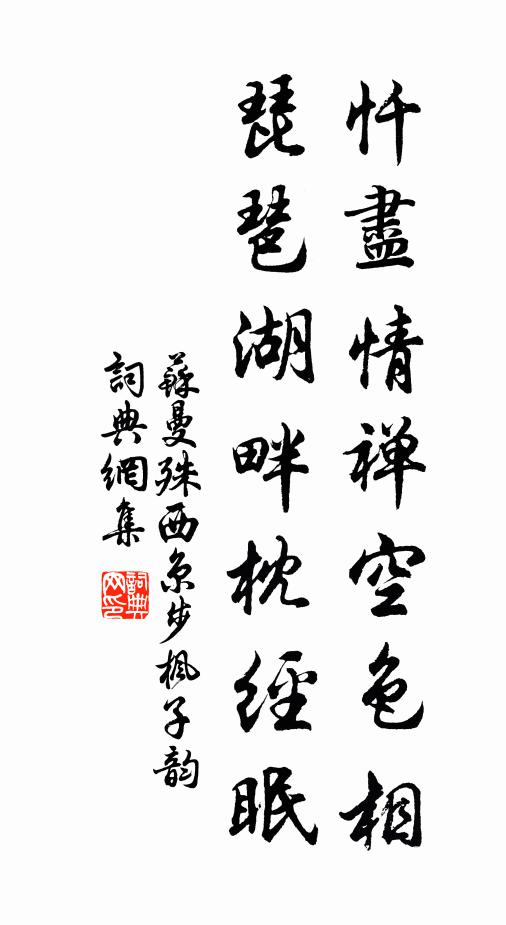 忏盡情禅空色相
琵琶湖畔枕經眠
蘇曼殊西京步楓子韵
詞典網集
詞典网印